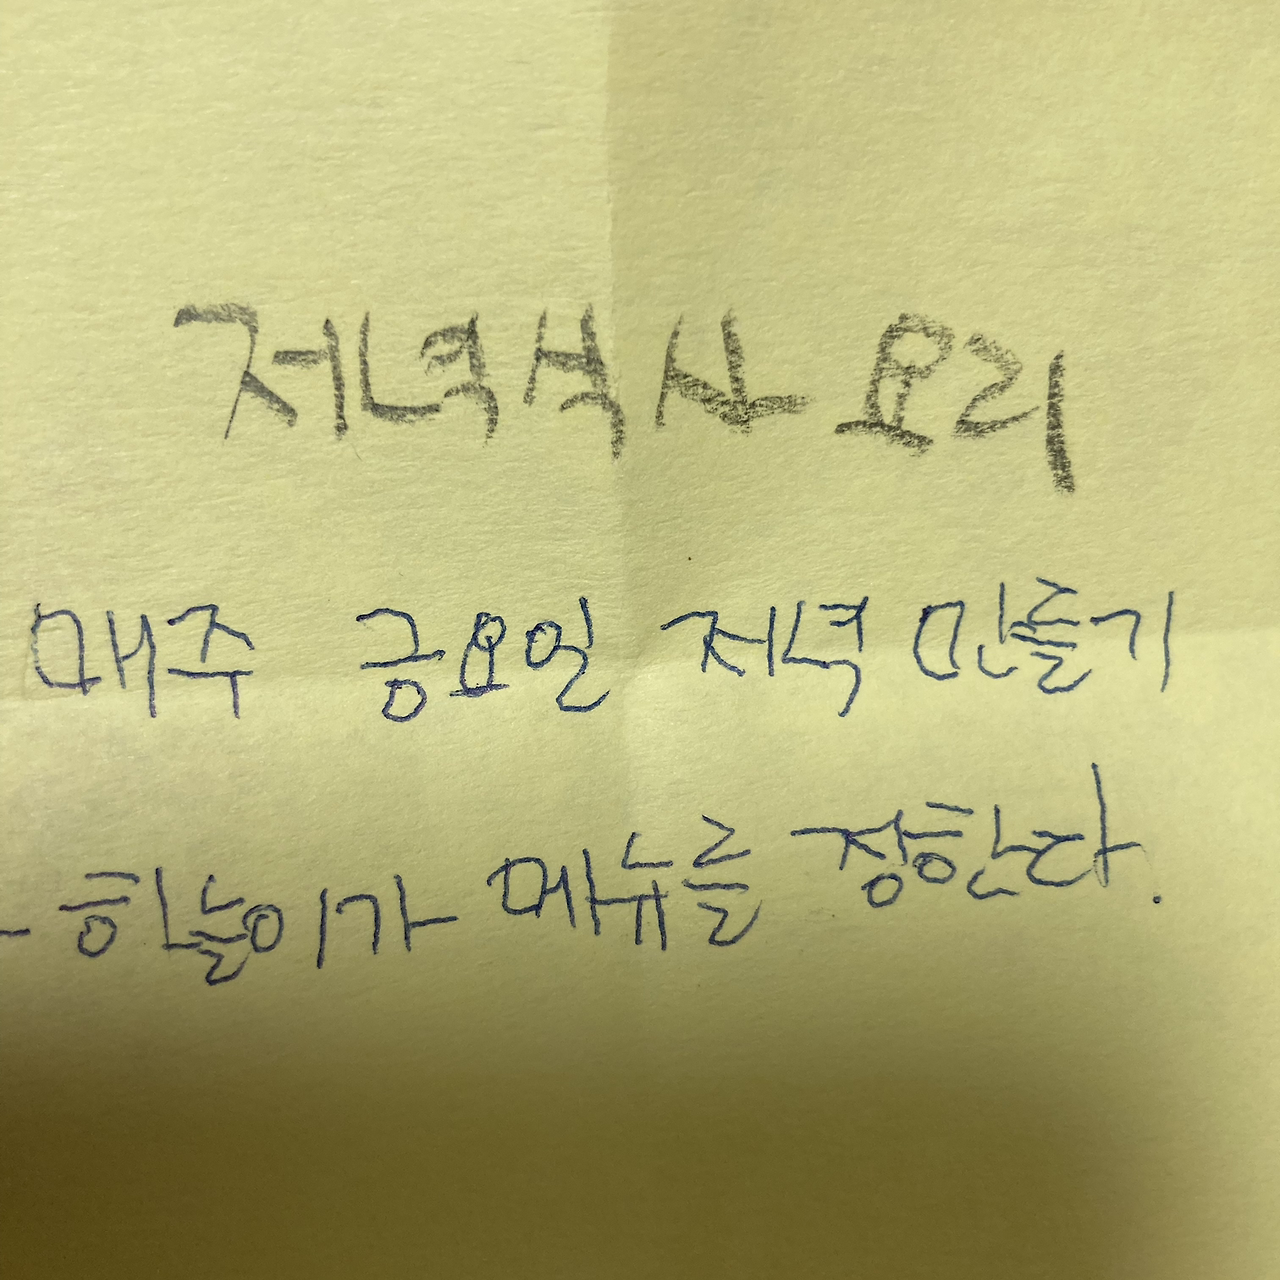 저녁식사 요리
매주 금요일 저녁 만들기
- 하늘이가 메뉴를 정한다.